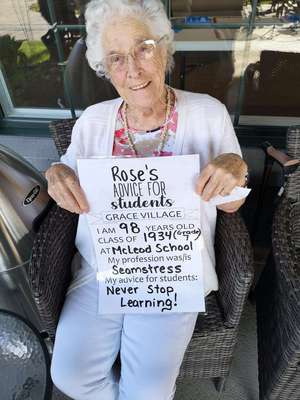 Rose's
ADVICE FOR
students
GRACE VILLAGE
I AM 98 YEARS OLD
CLASS OF 1934 (Grade 7)
AT McLeod School
My profession was/is
Seamstress
My advice for students:
Never Stop
Learning!